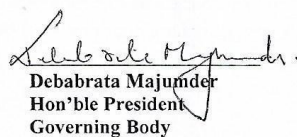 Debabrata Majumder
Debabrata Majumder
Hon'ble President
Governing Body